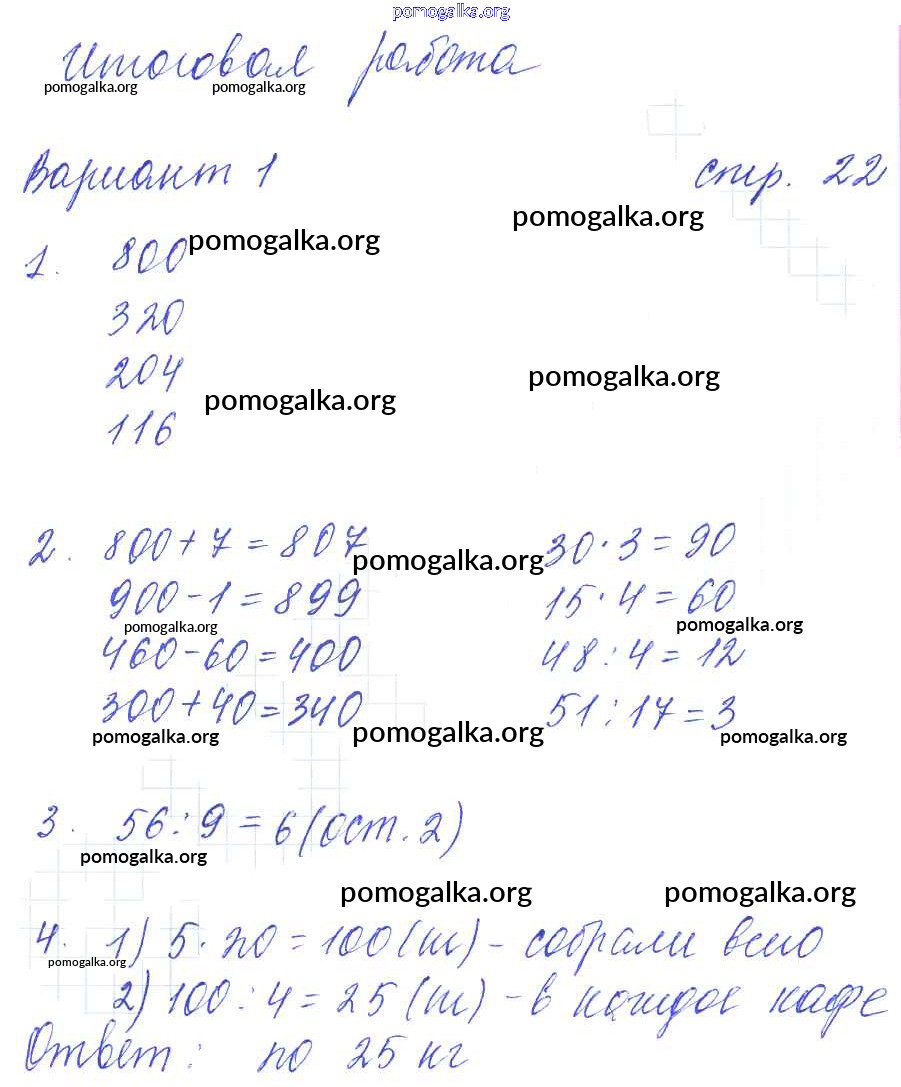 pomogalka.org
Итоговая работа
pomogalka.org pomogalka.org
Вариант 1 стр. 22
pomogalka.org
1. 800 pomogalka.org
320
204 pomogalka.org
pomogalka.org
116
2. 800+7=807 30·3=90
pomogalka.org
900-1=899 15·4=60
pomogalka.org pomogalka.org
460-60=400 48:4=12
300+40=340 51:17=3
pomogalka.org pomogalka.org pomogalka.org
3. 56:9=6(ост.2)
pomogalka.org
pomogalka.org pomogalka.org
4. 1) 5·20=100(ш)-собрали всего
pomogalka.org
2) 100:4=25(ш)-в каждое кафе
Ответ: по 25 кг